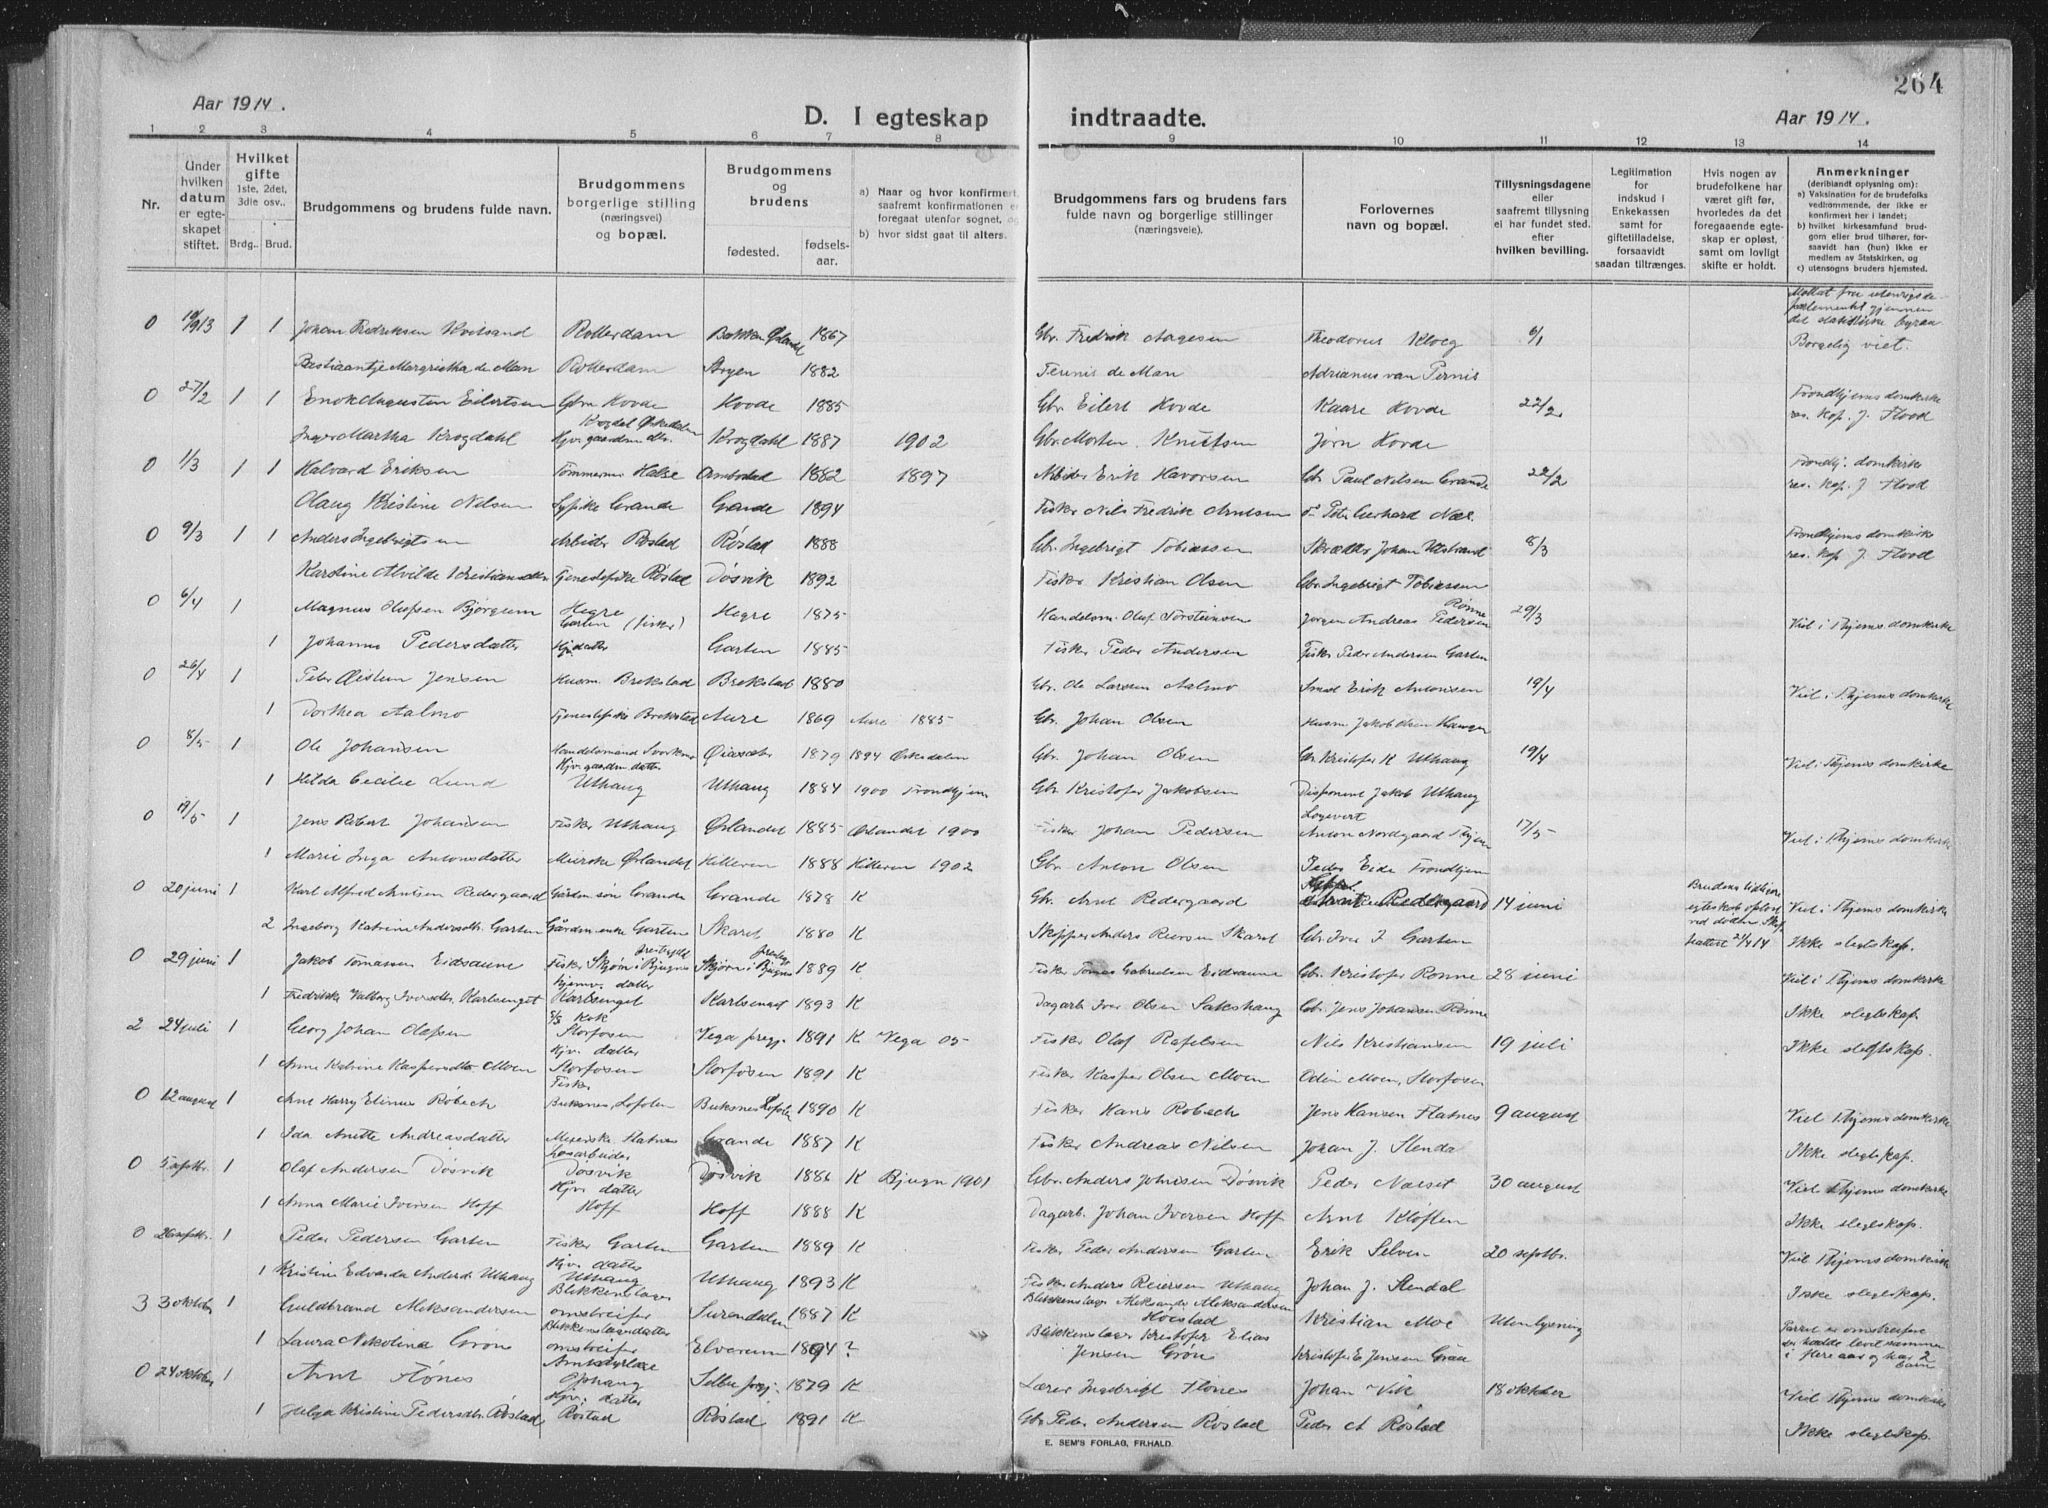 264
Aar 1914.
D. I egteskap indtraadte.
Aar 1914.
1 2 3 4 5 6 7 8 9 10 11 12 13 14
Nr.
Under hvilken datum er egteskapet stiftet.
Hvilket gifte 1ste, 2det, 3die osv..
Brdg.. Brud.
Brudgommens og brudens fulde navn.
Brudgommens borgerlige stilling (næringsvei) og bopæl.
Brudgommens og brudens
fødested. fødsels-aar.
a) Naar og hvor konfirmert, saafremt konfirmationen er foregaat utenfor sognet, og
b) hvor sidst gaat til alters.
Brudgommens fars og brudens fars fulde navn og borgerlige stillinger (næringsveie).
Forlovernes navn og bopæl.
Tillysningsdagene eller saafremt tillysning ei har fundet sted. efter hvilken bevilling.
Legitimation for indskud i Enkekassen samt for giftetilladelse, forsaavidt saadan tiltrænges.
Hvis nogen av brudefolkene har været gift før, hvorledes da det foregaaende egteskap er opløst, samt om lovligt skifte er holdt.
Anmerkninger (deriblandt oplysning om):
a) Vaksination for de brudefolks vedkommende, der ikke er konfirmert her i landet;
b) hvilket kirkesamfund brudgom eller brud tilhører, forsaavidt han (hun) ikke er medlem av Statskirken, og
c) utensogns bruders hjemsted.
0 1913 1 1 Johan Fredriksen Kvitsand Rotterdam Bakken Ørlandet 1867 Gbr. Fredrik Aagesen Theodorus Kloeg 6/1 Borgelig viet.
Bastiaantje Margrietha de Man Rotterdam Stryen 1882 Teunis de Man Adrianus van Pernis
0 27/2 1 1 Enok Augusten Eilertsen Gbr. Hovde Hovde 1885 Gbr. Eilert Hovde Kaare Hovde 22/2 Trondhjems domkirke res. kap. J. Flood
Inger Martha Krogdahl Krogdal Ørkedalen Hjv. gaardm. dtr. Krogdahl 1887 1902 Gbr. Morten Knutsen Jørn Hovde
0 1/3 1 1 Halvard Eriksen Tømmerm. Halse 1882 1897 Arbeider Erik Havorsen Gbr. Paul Nilsen Grande 22/2 Trondhj. domkirke res. kap. J. Flood
Olaug Kristine Nilsen Grande Grande 1894 Fisker Nils Fredrik Arntsen Peter Gerhard
0 9/3 1 1 Anders Ingebrigtsen Arbeider Røstad Røstad 1888 Gbr. Ingebrigt Tobiassen Skrædder Johan 8/3 Trondhjems domkirke res. kap. J. Flood
Karstine Alvilde Kristiansdtr. Tjenestepike Røstad Døsvik 1892 Fisker Kristian Olsen Gbr. Ingebrigt Tobiassen
0 6/4 1 Magnus Olufsen Bjørgum Hegre Garten (fisker) Hegre 1875 Handelsm. Oluf Torsteinsen Jørgen Andreas Pedersen Rønne 29/3 Viet i Thjems domkirke
1 Johanna Pedersdatter Hjv. datter Garten 1885 Fisker Peder Andersen Fisker Peder Andersen Garten
0 26/4 1 Peter Øistein Jensen Husm. Brekstad Brekstad 1880 Gbr. Ole Larssen Aalmo Smed Erik Antonsen 19/4 Viet i Thjems domkirke
1 Dorthea Aalmo Tjenestepike Brekstad Aure 1869 Aure 1885 Gbr. Johan Olsen Husm. Jakob Olsen
0 8/5 1 Ole Johansen Handelsmand 1879 1894 Ørkedalen Gbr. Johan Olsen Gbr. Kristofer K Uthaug 19/4 Viet i Thjems domkirke
1 Hilda Cecilie Lund Hjv. gaardm. datter Uthaug Uthaug 1884 1900 Trondhjem Gbr. Kristofer Jakobsen Disponent Jakob Uthaug
0 17/5 1 Jens Robert Johansen Fisker Uthaug Ørlandet 1885 Ørlandet 1900 Fisker Johan Pedersen Anton Nordgaard Thjem 17/5 Viet i Thjems domkirke
1 Marie Inga Antonsdatter Meierske Ørlandet Hitteren 1888 Hitteren 1902 Gbr. Anton Olsen Peder Eide Trondhjem
0 20 juni 1 Karl Alfred Arntsen Redergaard Gårdm. søn Grande Grande 1878 K Gbr. Arnt Redergaard Arnt Redergaard 14 juni Viet i Thjems domkirke
2 Ingeborg Katrine Andersdtr. Garten Gårdm. enke Garten Skaret 1880 K Skipper Anders Reiersen Skaret Gbr. Iver J. Garten Ikke slegtskap.
0 29 juni 1 Jakob Tomassen Eidsaune Fisker Skjørn i Bjugn Skjørn i Bjugn 1889 K Fisker Tomas Gabrielsen Eidsaune Gbr. Kristofer Rønne 28 juni Viet i Thjems domkirke
1 Fredrikke Valborg Iversdtr. Karlsenget hjemv. datter Karlsenget Karlsenget 1893 K Dagarb. Iver Olsen Sakshaug Gbr. Jens Johansen Rønne Ikke slegtskap.
2 24 juli 1 Georg Johan Olafsen Kok Storfosen Vega prgj. 1891 K Vega 05 Fisker Olaf Rafelsen Nils Kristiansen 19 juli Ikke slegtskap.
1 Anne Katrine Kaspersdtr. Moen Hjv. datter Storfosen Storfosen 1891 K Fisker Kasper Olsen Moen Odin Moen, Storfosen
0 12 august 1 Arnt Harry Elinus Robech Fisker Buksnes, Lofoten Buksnes Lofoten 1890 K Fisker Hans Robech Jens Hansen Flatnes 9 august Viet i Thjems domkirke
1 Ida Anette Andreasdatter Meierske Flatnes Grande 1887 K Fisker Andreas Nilsen Johan J. Stendal Ikke slegtskap.
0 5 septbr. 1 Olaf Andersen Døsvik Løsarbeider Døsvik Døsvik 1886 K Bjugn 1901 Gbr. Anders Johnsen Døsvik Peder Næset 30 august Viet Thjems domkirke
1 Anna Marie Iversen Hoff Hjv. datter Hoff Hoff 1888 K Dagarb. Johan Iversen Hoff Arnt Kloften Ikke slegtskap.
0 26 septbr. 1 Peder Pedersen Garten Fisker Garten Garten 1889 K Fisker Peder Andersen Garten Erik Selven 20 septbr. Viet Thjems domkirke
1 Kristine Edvarda Andersdtr. Uthaug Hjv. datter Uthaug Uthaug 1893 K Fisker Anders Reiersen Uthaug Johan J. Stendal Ikke slegtskap.
3 3 oktober 1 Guldbrand Aleksandersen Blikkenslager omstreifer Surendalen 1887 K Blikkenslager Aleksander Aleksandersen Høistad Kristian Moe Uten lysning Parret er omstreifere de hadde levet sammen i flere aar og har 2 barn
1 Laura Nikolina Grøn Blikkenslagerdatter omstreifer Elverum 1894 ? Blikkenslager Kristofer Elias Jensen Grøn Kristofer E. Jensen Grøn
0 24 oktober 1 Arnt Flønes Ophaug Selbu prgj. 1879 K Lærer Ingebrigt Flønes Johan Vik 18 oktober Viet Thjems domkirke
1 Helga Kristine Pedersdtr. Røstad Hjv. datter Røstad Røstad 1891 K Gbr. Peder Andersen Røstad Peder A Røstad Ikke slegtskap.
E. SEM'S FORLAG, FR.HALD.